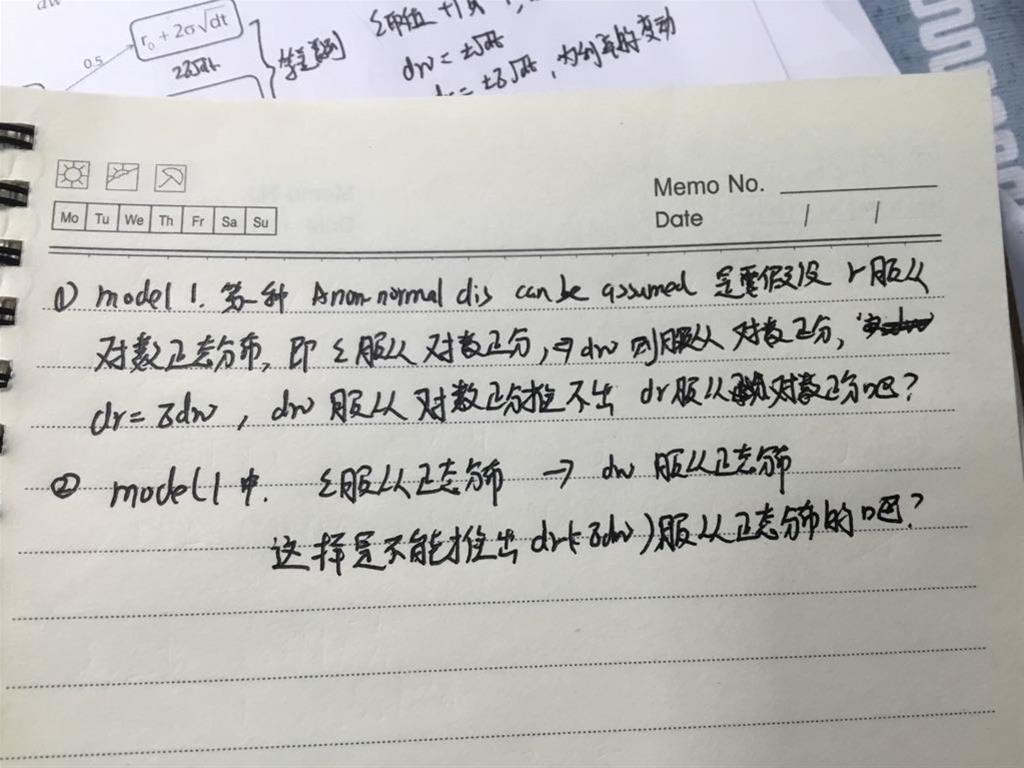 0.5
r₀ + 2σ√dt
2σ√dt
dw = ±√dt
Memo No.
Mo Tu We Th Fr Sa Su
Date / /
① model 1. 第一种 A non-normal dis can be assumed 是要假设 r 服从
对数正态分布, 即 ε 服从 对数正分, → dw 则服从 对数正分,
dr = σdw , dw 服从 对数正分推不出 dr 服从对数正分吧?
② model 1 中. ε服从正态分布 → dw 服从正态分布
这样是不能推出 dr(=σdw)服从正态分布的吧?